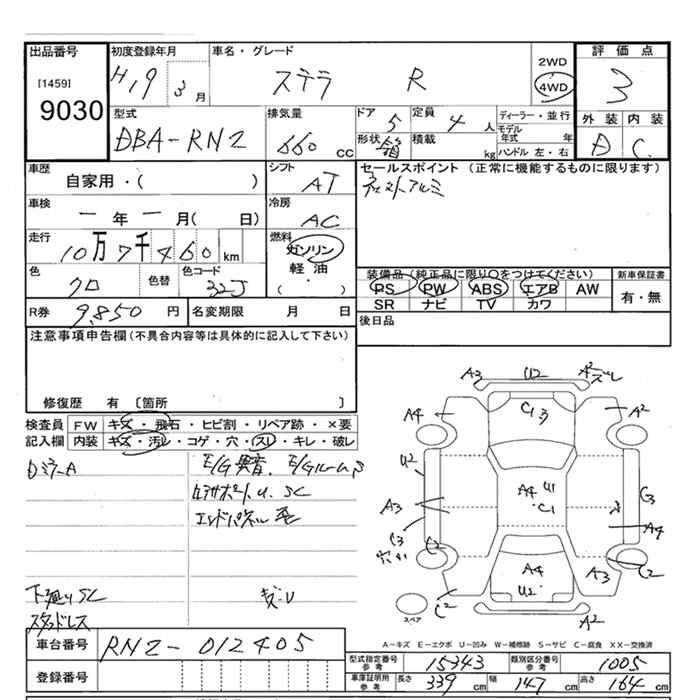 出品番号 初度登録年月 車名・グレード 評価点
[1459] H19 3月 ステラ R 2WD 4WD 3
9030
型式 排気量 ドア 5 定員 4人 ディーラー・並行 外装 内装
DBA-RN2 660 CC 形状 箱 積載 kg モデル年式 年 C
ハンドル 左・右
車歴 シフト セールスポイント (正常に機能するものに限ります)
自家用・( ) AT
車検 冷房
一年一月( 日) AC
走行 燃料
10万7千460km ガソリン
色 色替 色コード 軽油 装備品 (純正品に限り○をつけてください) 新車保証書
クロ 32J (・) PS PW ABS エアB AW 有・無
SR ナビ TV カワ
R券 9,850円 名変期限 月 日 後日品
注意事項申告欄 (不具合内容等は具体的に記入して下さい)
修復歴 有 〔箇所 〕
検査員 FW キズ・飛石・ヒビ割・リペア跡・×要
記入欄 内装 キズ・汚レ・コゲ・穴・スレ・キレ・破レ
A3 U2 A2 ズレ
A4 C1 3 A2
E/G異音. E/Gルーム
U2
SC
A4 U1 C1 C3
A3
エンドパネル
C3 C2 A4
A4 U2 A3 C2
下廻りSC キズ・U
スタッドレス C2 スペア A2
A-キズ E-エクボ U-凹み W-補修跡 S-サビ C-腐食 XX-交換済
車台番号 RN2-012405
型式指定番号 参考 15343 類別区分番号 参考 1005
登録番号 車庫証明用 参考 長さ 339cm 幅 147cm 高さ 164cm